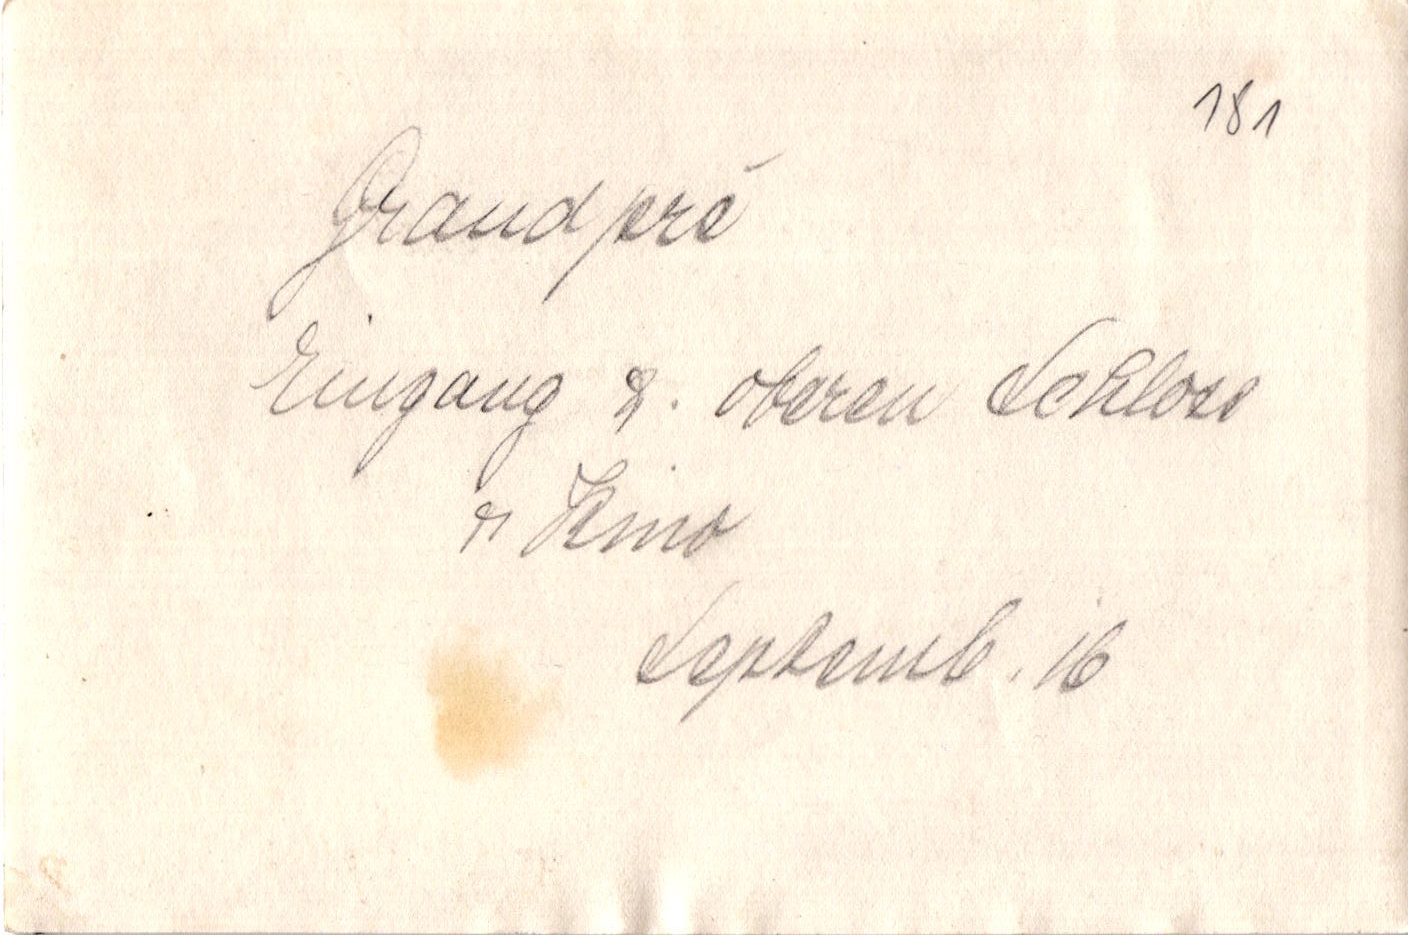 181
Grandpré
Eingang z. oberen Schloss
u Kino
Septemb. 16